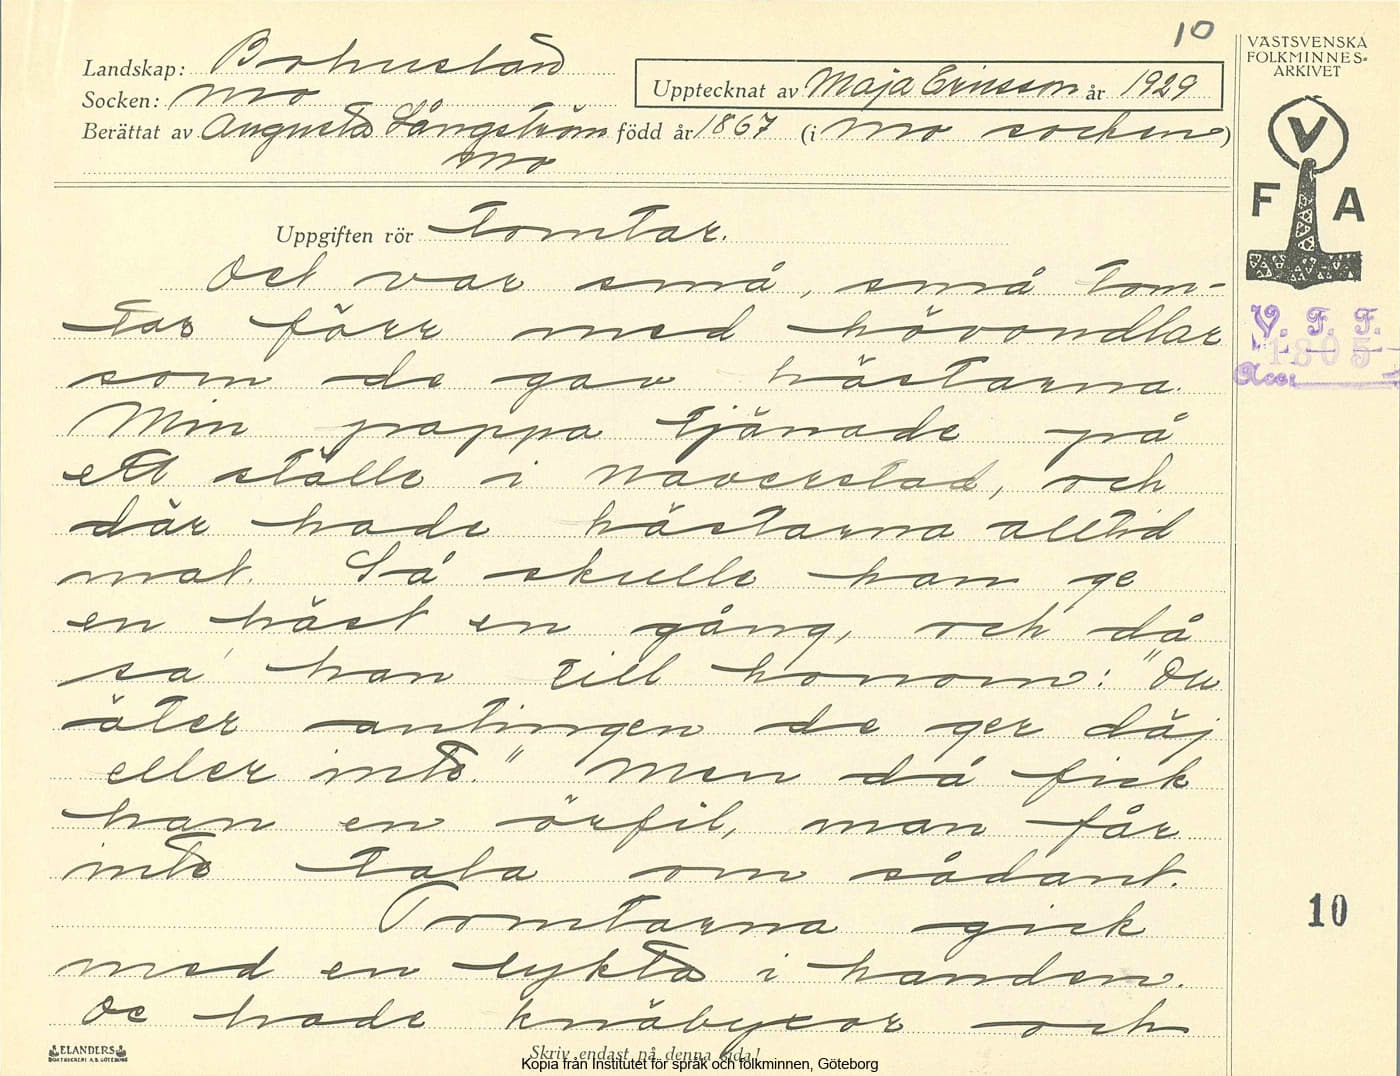 10
Landskap: Bohuslän
Socken: Mo
Upptecknat av Maja Ericsson år 1929
Berättat av Augusta Långström född år 1867 (i Mo socken)
Mo
VÄSTSVENSKA
FOLKMINNES-
ARKIVET
V
F A
V. F. F.
1805
Acc.
Uppgiften rör Tomtar.
Det var små, små tom-
tar förr med hövondlar
som de gav hästarna.
Min pappa tjänade på
ett ställe i Naverstad, och
där hade hästarna alltid
mat. Så skulle han ge
en häst en gång, och då
sa' han till honom: "Du
äter antingen de ger däj
eller inte." Men då fick
han en örfil, man får
inte tala om sådant.
Tomtarna gick
med en lykta i handen.
De hade knäbyxor och
10
ELANDERS
BOKTRYCKERI A.B. GÖTEBORG
Skriv endast på denna sida!
Kopia från Institutet för språk och folkminnen, Göteborg